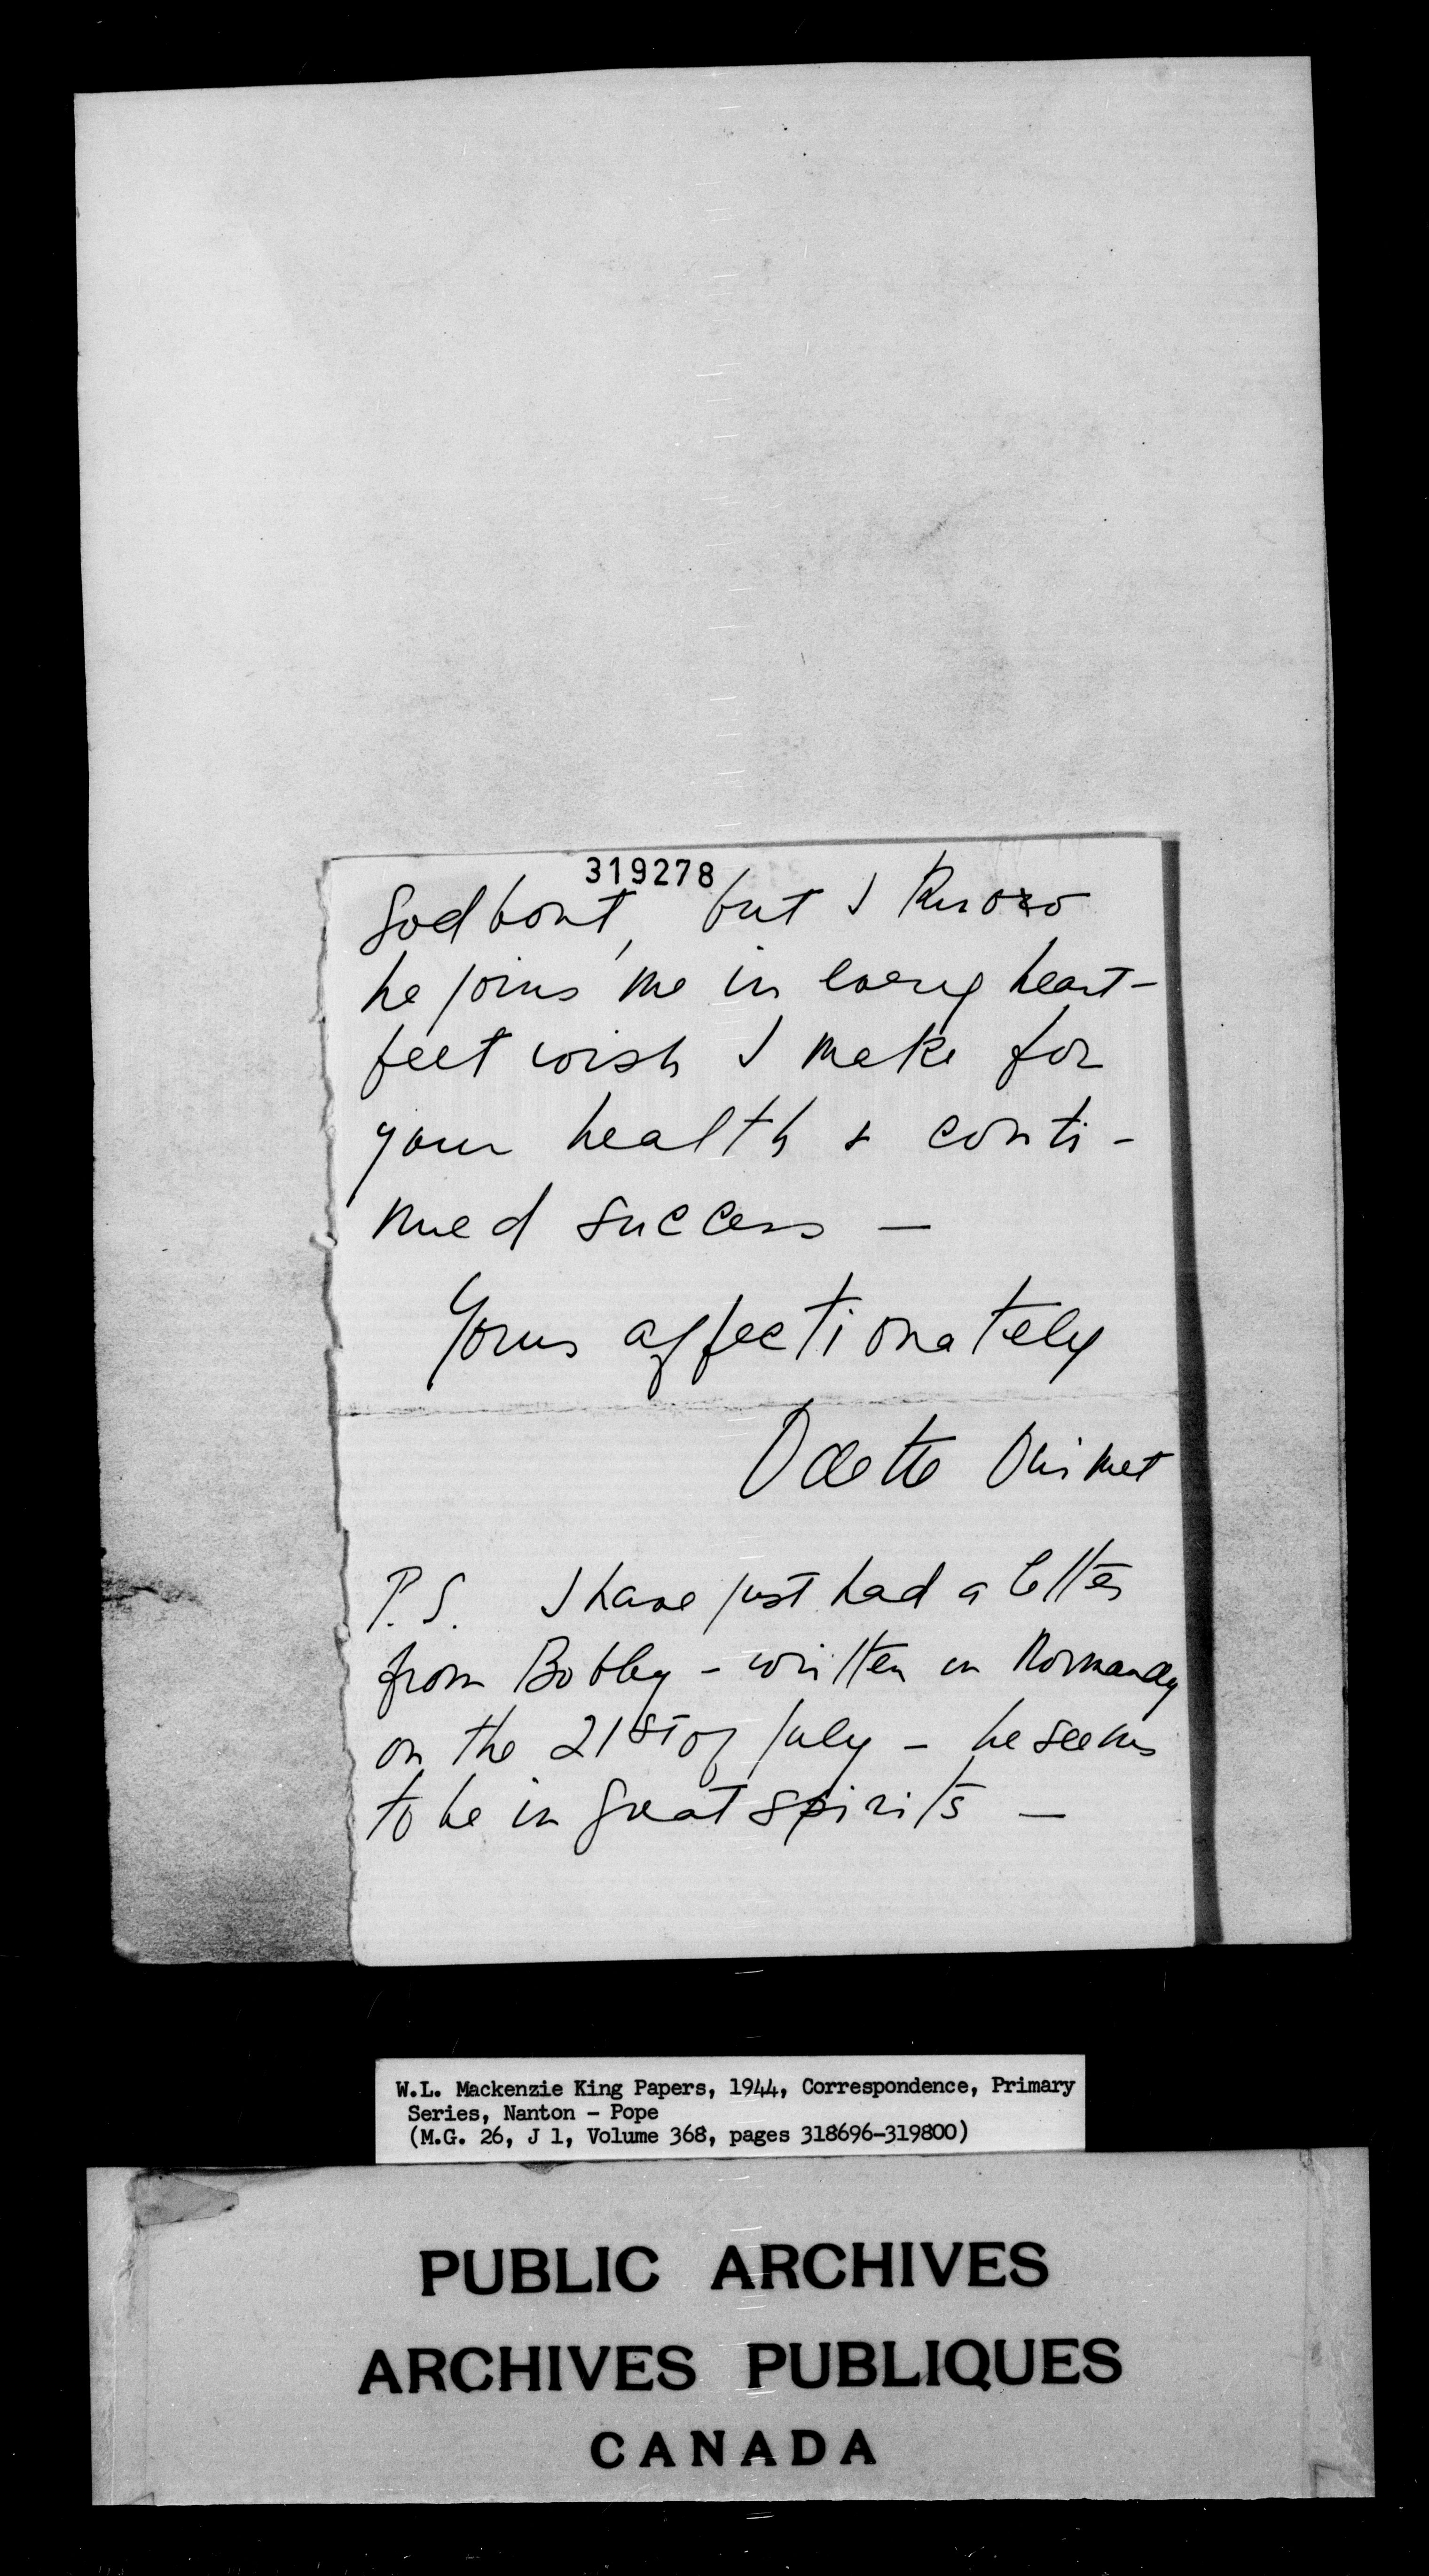 319278
Godbout, but I know
he joins me in every heart-
felt wish I make for
your health & conti-
nued success —
Yours affectionately
Odette Ouimet
P.S. I have just had a letter
from Bobby - written in Normandy
on the 21st of July - he seems
to be in great spirits —
W.L. Mackenzie King Papers, 1944, Correspondence, Primary
Series, Nanton - Pope
(M.G. 26, J 1, Volume 368, pages 318696-319800)
PUBLIC ARCHIVES
ARCHIVES PUBLIQUES
CANADA